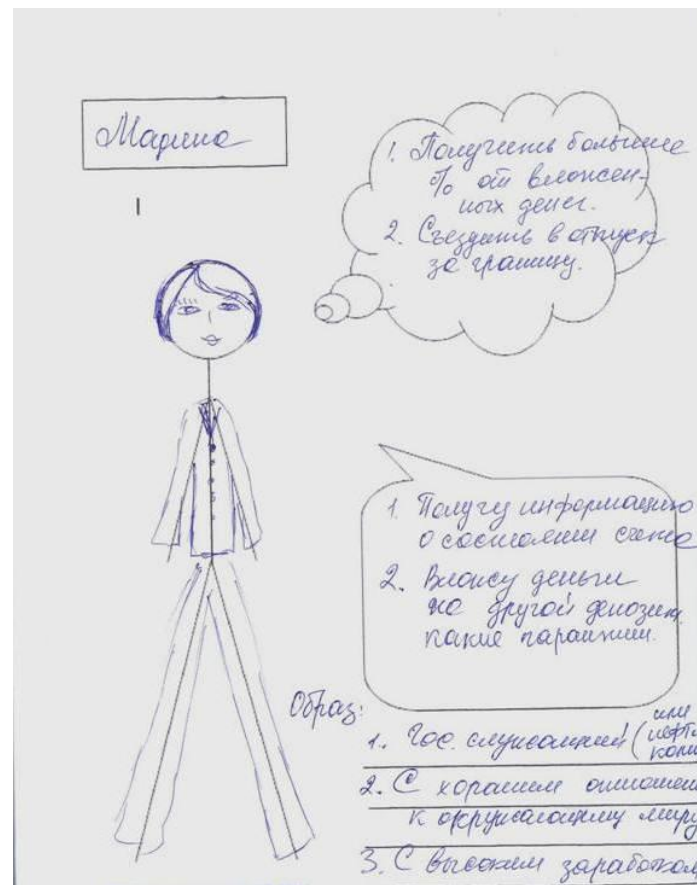 Марина
1. Получить большие
% от вложен-
ных денег.
2. Съездить в отпуск
за границу.
1. Получу информацию
о состоянии счета
2. Вложу деньги
на другой депозит,
какие гарантии.
Образ:
1. Гос. служащий (или
2. С хорошим
к окружающему миру
3. С высоким